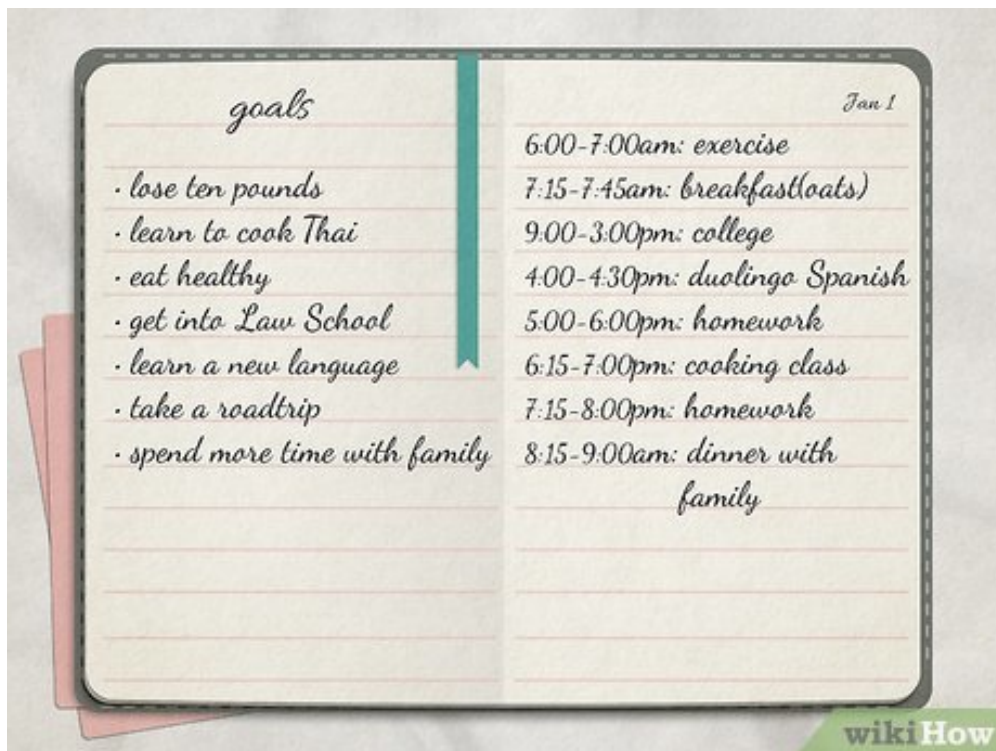 goals
· lose ten pounds
· learn to cook Thai
· eat healthy
· get into Law School
· learn a new language
· take a roadtrip
· spend more time with family
Jan 1
6:00-7:00am: exercise
7:15-7:45am: breakfast(oats)
9:00-3:00pm: college
4:00-4:30pm: duolingo Spanish
5:00-6:00pm: homework
6:15-7:00pm: cooking class
7:15-8:00pm: homework
8:15-9:00am: dinner with
family
wikiHow